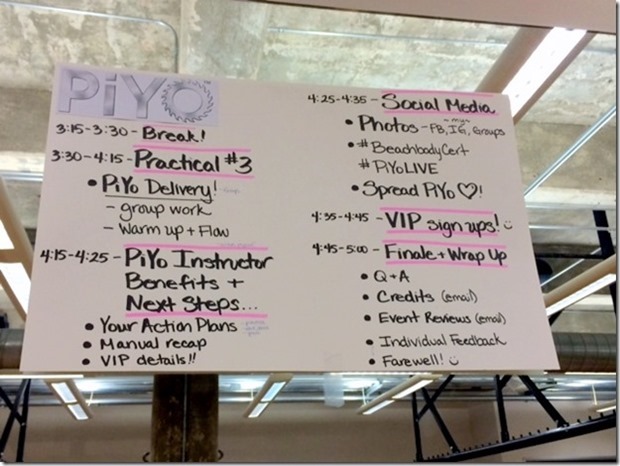 PiYO
3:15-3:30 - Break!
3:30-4:15 - Practical #3
• PiYo Delivery!
- group work
- Warm up + Flow
4:15-4:25 - PiYo Instructor
Benefits +
Next Steps...
• Your Action Plans
• Manual recap
• VIP details!!
4:25-4:35 - Social Media
• Photos - FB, IG, Groups
• #BeachbodyCert
#PiYoLIVE
• Spread PiYo ♡!
4:35-4:45 - VIP sign ups!
4:45-5:00 - Finale + Wrap Up
• Q + A
• Credits (email)
• Event Reviews (email)
• Individual Feedback
• Farewell!